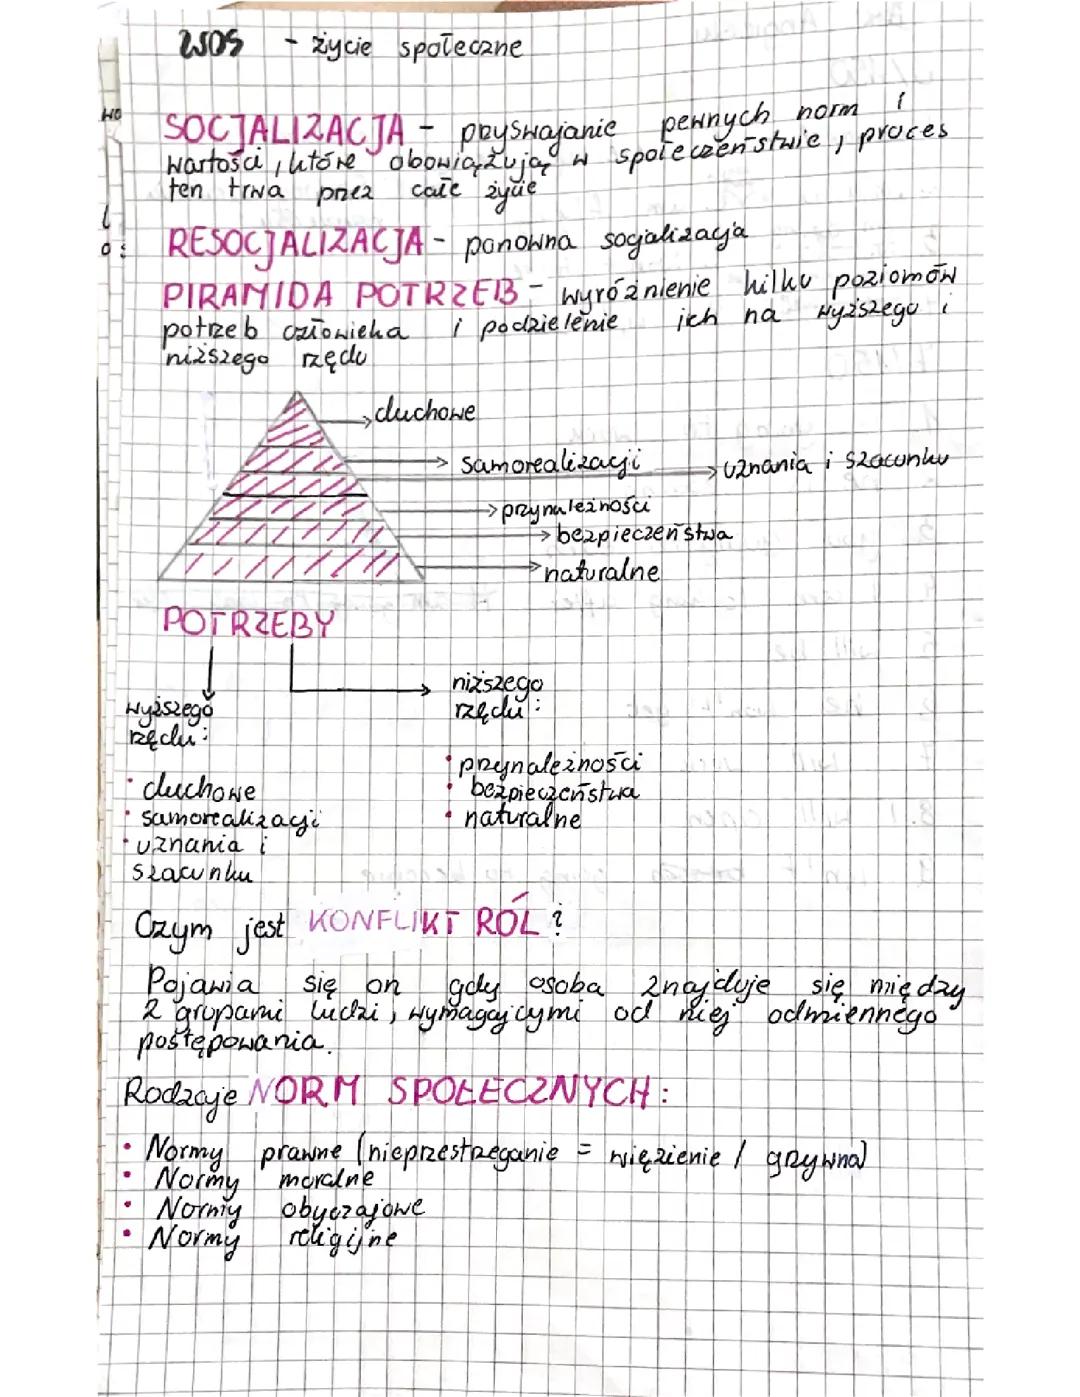 WOS - życie społeczne
SOCJALIZACJA - przyswajanie pewnych norm i
wartości, które obowiązują w społeczeństwie, proces
ten trwa przez całe życie
RESOCJALIZACJA - ponowna socjalizacja
PIRAMIDA POTRZEB - wyróżnienie kilku poziomów
potrzeb człowieka i podzielenie ich na wyższego i
niższego rzędu
duchowe
samorealizacji
uznania i szacunku
przynależności
bezpieczeństwa
naturalne
POTRZEBY
wyższego
rzędu:
• duchowe
• samorealizacji
• uznania i
szacunku
niższego
rzędu:
• przynależności
• bezpieczeństwa
• naturalne
Czym jest KONFLIKT RÓL?
Pojawia się on gdy osoba znajduje się między
2 grupami ludzi, wymagającymi od niej odmiennego
postępowania.
Rodzaje NORM SPOŁECZNYCH:
• Normy prawne (nieprzestrzeganie = więzienie / grzywna)
• Normy moralne
• Normy obyczajowe
• Normy religijne